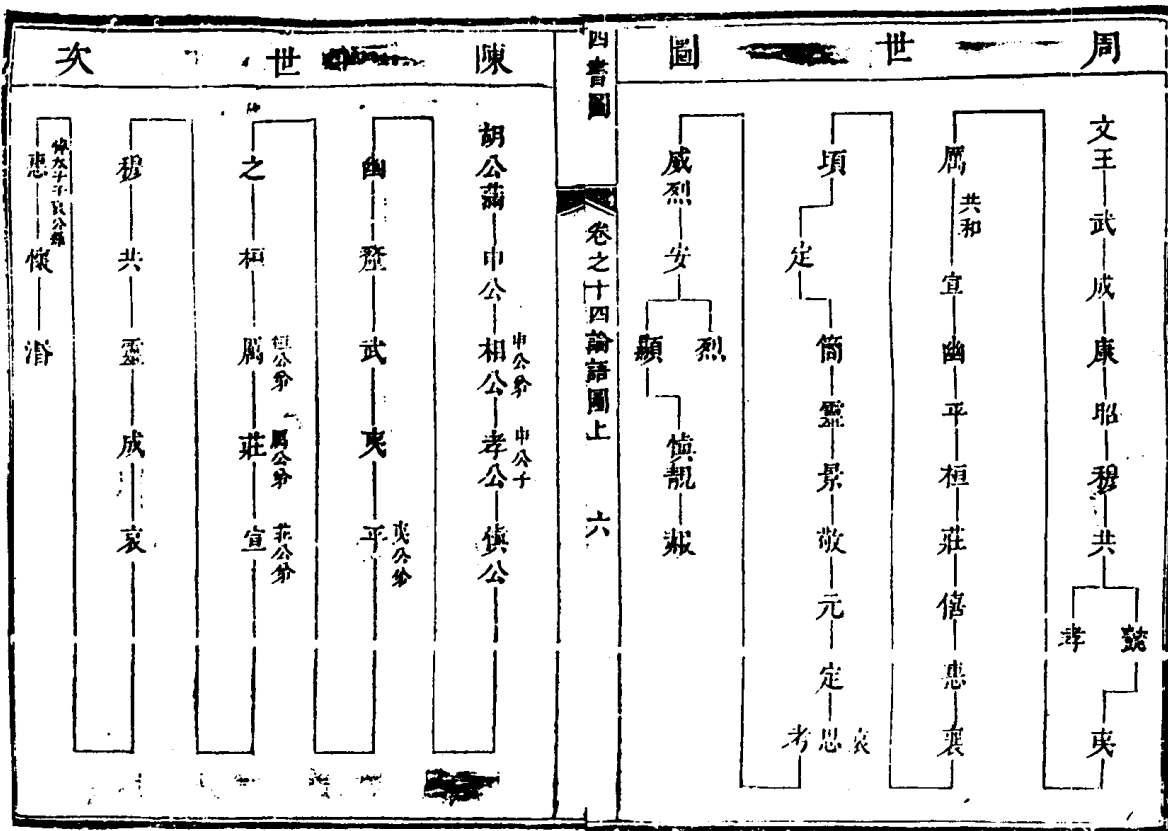 周世圖
文王 武 成 康 昭 穆 共
懿 孝
夷
厲 共和 宣 幽 平 桓 莊 僖 惠 襄
頃 定 簡 靈 景 敬 元 定
哀 思 考
威烈 安
烈 顯
慎靚 赧
四書圖 卷之十四論語圖上 六
陳世次
胡公滿 申公 相公 申公弟 孝公 申公子 慎公
幽 釐 武 夷 平 夷公弟
之 桓 厲 桓公弟 莊 厲公弟 宣 莊公弟
穆 共 靈 成 哀
惠 懷 湣